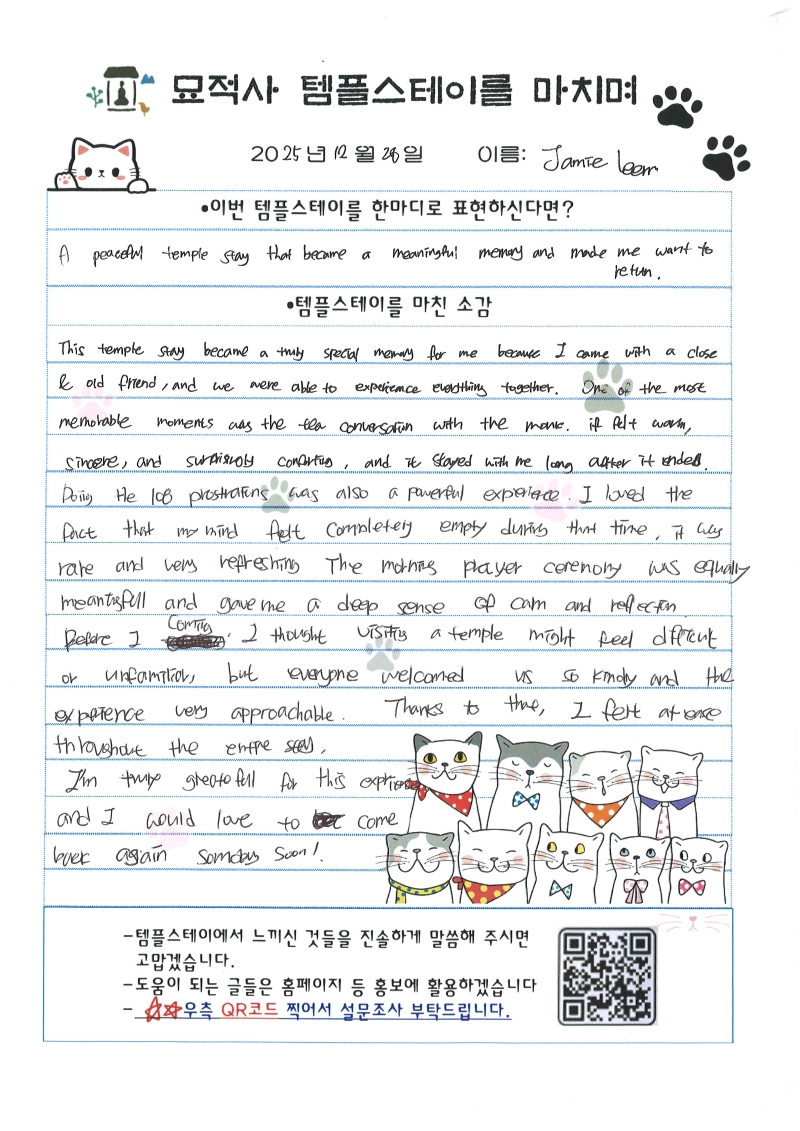 묘적사 템플스테이를 마치며
2025년 12월 28일 이름: Jamie Leem
•이번 템플스테이를 한마디로 표현하신다면?
A peaceful temple stay that became a meaningful memory and made me want to
return.
•템플스테이를 마친 소감
This temple stay became a truly special memory for me because I came with a close
& old friend, and we were able to experience everything together. One of the most
memorable moments was the tea conversation with the monk. it felt warm,
sincere, and surprisingly comforting, and it stayed with me long after it ended.
Doing the 108 prostrations was also a powerful experience. I loved the
fact that my mind felt completely empty during that time, it was
rare and very refreshing The morning prayer ceremony was equally
meaningfull and gave me a deep sense of calm and reflection.
Before I coming, I thought visiting a temple might feel different
or unfamiliar, but everyone welcomed us so kindly and the
experience very approachable. Thanks to that, I felt at ease
throughout the entire stay.
I'm truly greatefull for this exprience
and I would love to come
back again someday soon!
-템플스테이에서 느끼신 것들을 진솔하게 말씀해 주시면
고맙겠습니다.
-도움이 되는 글들은 홈페이지 등 홍보에 활용하겠습니다
- ☆☆우측 QR코드 찍어서 설문조사 부탁드립니다.